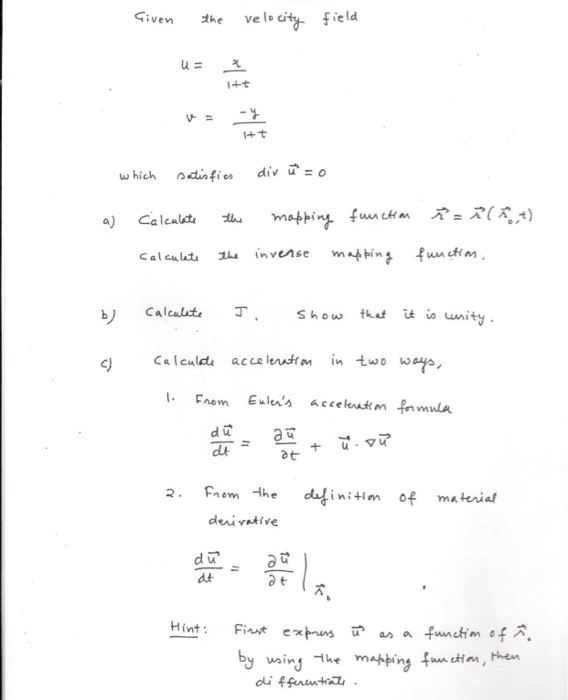 Given the velocity field
u = x / 1+t
v = -y / 1+t
which satisfies div u⃗ = 0
a) Calculate the mapping function r⃗ = r⃗(r⃗₀,t)
Calculate the inverse mapping function.
b) Calculate J. Show that it is unity.
c) Calculate acceleration in two ways,
1. From Euler's acceleration formula
du⃗/dt = ∂u⃗/∂t + u⃗·∇u⃗
2. From the definition of material
derivative
du⃗/dt = ∂u⃗/∂t |r⃗₀
Hint: First express u⃗ as a function of r⃗₀
by using the mapping function, then
differentiate.